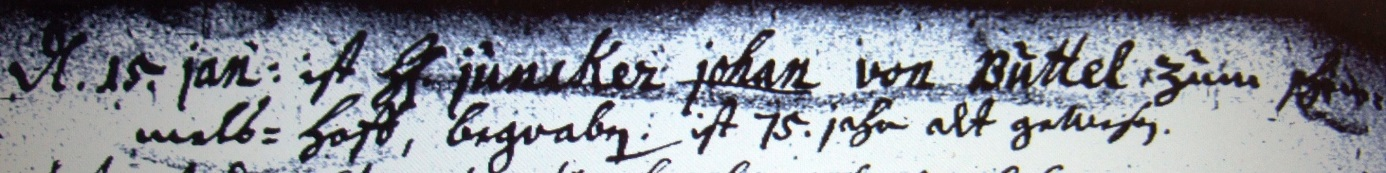 d. 15. jan: ist H. juncker johan von Büttel zum
mels= hoff, begraben. ist 75. jahr alt gewesen.